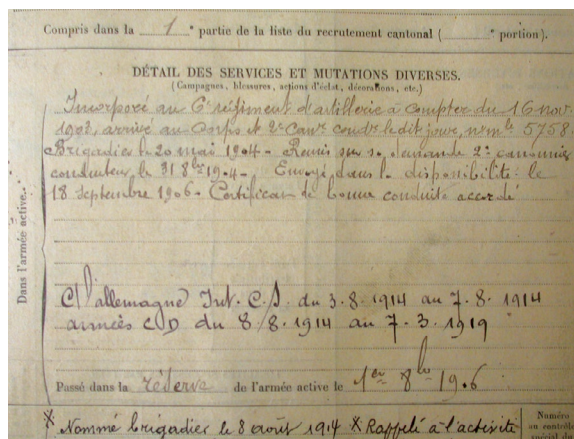 Compris dans la 1e partie de la liste du recrutement cantonal ( e portion).
DÉTAIL DES SERVICES ET MUTATIONS DIVERSES.
(Campagnes, blessures, actions d'éclat, décorations, etc.)
Incorporé au 6e régiment d'artillerie à compter du 16 nov.
1903, arrivé au Corps et 2e canr condr le dit jour, n° mle 5758.
Brigadier le 20 mai 1904 - Remis sur sa demande 2e canonnier
conducteur le 31 8bre 1904 - Envoyé dans la disponibilité le
18 septembre 1906 - Certificat de bonne conduite accordé
Dans l'armée active.
C/ l'allemagne Int. C.S. du 3-8-1914 au 7-8-1914
armées CD du 8/8-1914 au 7-3-1919
Passé dans la réserve de l'armée active le 1er 8bre 1906
X Nommé brigadier le 8 août 1914 X Rappelé à l'activité
Numéro
au contrôle
spécial du